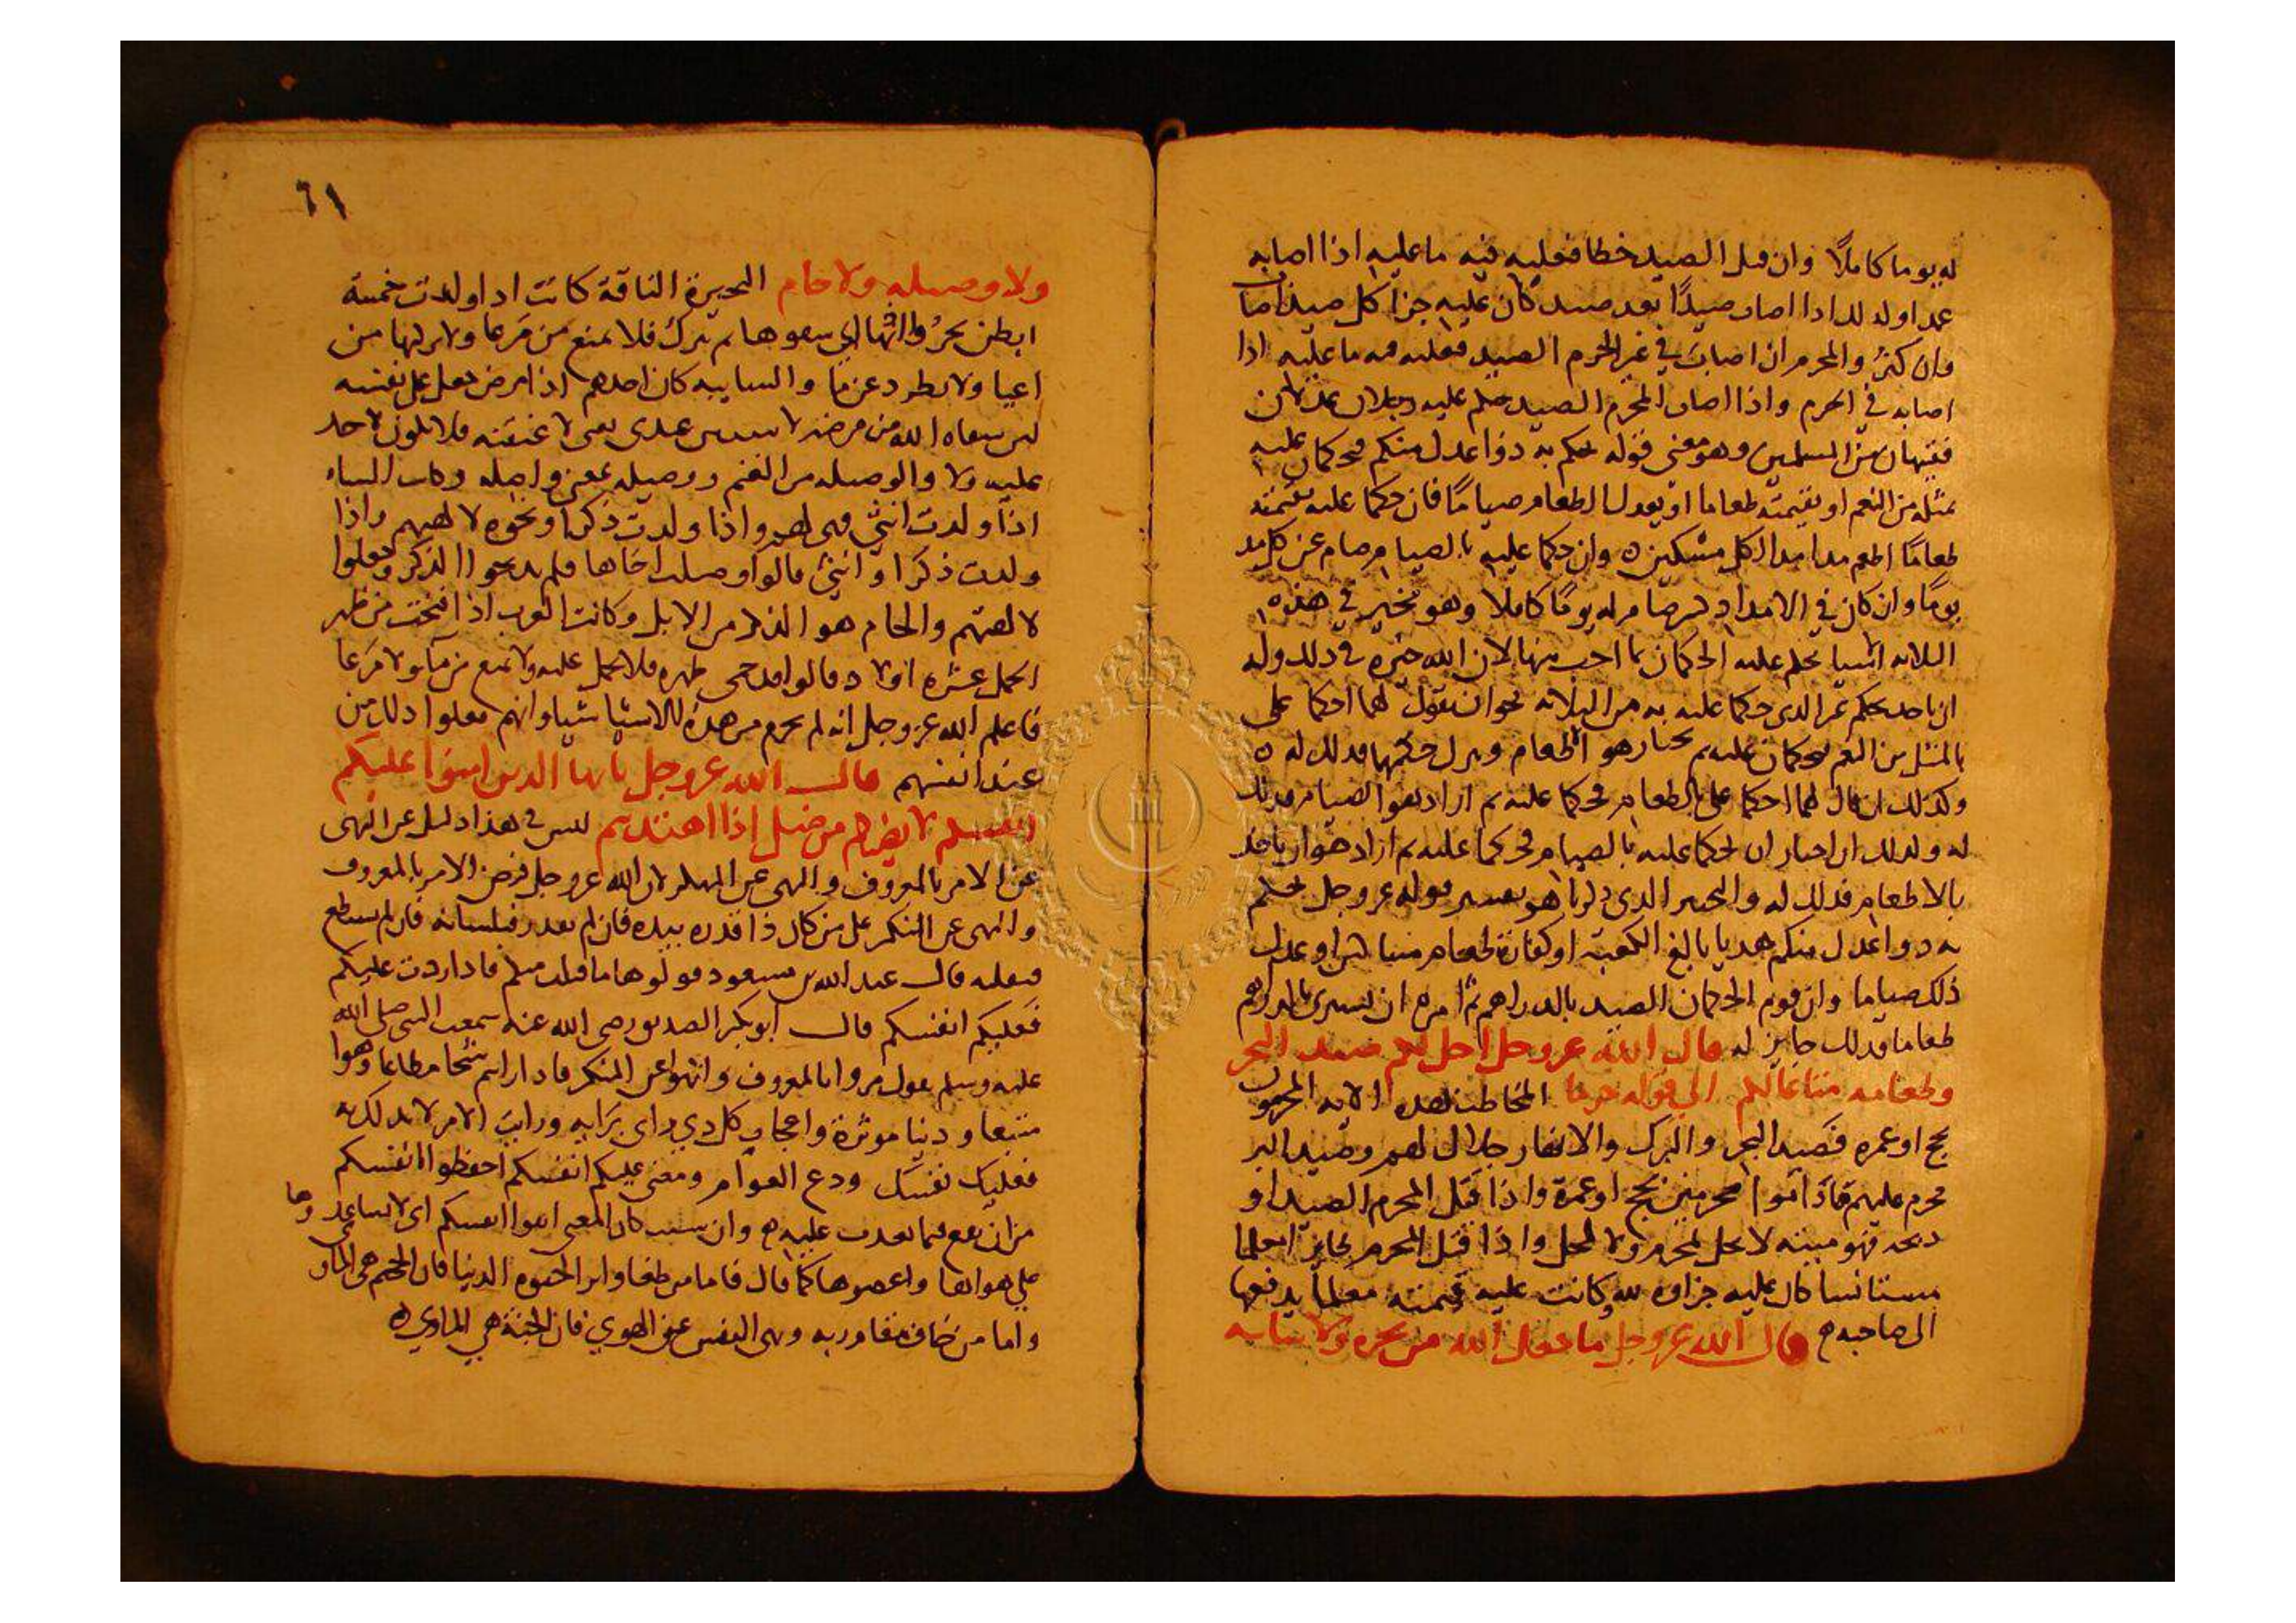 له يوما كاملًا وان قتل الصيد خطا فعليه فيه ما عليه اذا اصابه
عمدا وكذلك اذا اصاب صيدًا بعد صيد كان عليه جزا كل صيد اصاب
وان كثر والمحرم ان اصاب في غير الحرم الصيد فعليه فيه ما عليه اذا
اصابه في الحرم واذا اصاب المحرم الصيد حكم عليه رجلان عدلان
فقيهان من المسلمين وهو معنى قوله يحكم به ذوا عدل منكم فيحكمان عليه
بمثله من النعم او بقيمته طعاما او يعدل الطعام صيامًا فان حكما عليه بقيمته
طعامًا اطعم مدا مدا لكل مسكين ه وان حكما عليه بالصيام صام عن كل مد
يومًا وان كان في الامداد كسر صام له يومًا كاملا وهو مخير في هذه
الثلاثه اشيا يحكم عليه الحكمان بما احب منها لان الله خيره في ذلك وله
ان ياخذ بحكم غير الذي حكما عليه به من الثلاثه نحو ان يقول لهما احكما على
بالمثل من النعم فيحكمان عليه ثم يختار هو الطعام ويترك حكمهما فذلك له ه
وكذلك ان قال لهما احكما على بالطعام فحكما عليه ثم اراد هو الصيام فذلك
له وكذلك ان اختار ان يحكما عليه بالصيام فحكما عليه ثم اراد هو ان ياخذ
بالاطعام فذلك له والتخيير الذي ذكرنا هو تفسير قوله عز وجل يحكم
به ذوا عدل منكم هديا بالغ الكعبة او كفارة طعام مساكين او عدل
ذلك صياما وان قوم الحكمان الصيد بالدراهم ثم امره ان يشتري بالدراهم
طعاما فذلك جايز له قال الله عز وجل احل لكم صيد البحر
وطعامه متاعا لكم الى قوله حرما المخاطب بهذه الايه المحرمون
بحج او عمره فصيد البحر والبرك والانهار حلال لهم وصيد البر
محرم عليهم ما داموا محرمين بحج او عمرة واذا قتل المحرم الصيد او
ذبحه فهو ميته لا يحل لمحرم ولا لمحل واذا قتل المحرم طايرا معلما
مستانسا كان عليه جزاوه لله وكانت عليه قيمته معلما يدفعها
الى صاحبه ه قال الله عز وجل ما جعل الله من بحيره ولا سايبه
٦١
ولا وصيله ولا حام البحيرة الناقة كانت اذا ولدت خمسة
ابطن بحر وا اذنها اي شقوها ثم تترك فلا تمنع من مرعا ولا يركبها من
اعيا ولا تطرد عن ما والسايبه كان احدهم اذا مرض جعل على نفسه
لئن شفاه الله من مرضه لاسيبن عبدي يعني لا عتقنه فلا يكون لاحد
عليه ولا والوصيله من الغنم ووصيله بمعنى واصله وكانت الشاه
اذا ولدت انثى فهي لهم واذا ولدت ذكرا ذبحوه لالهتهم واذا
ولدت ذكرا وانثى قالوا وصلت اخاها فلم يذبحوا الذكر وجعلوا
لالهتهم والحام هو الذكر من الابل وكانت العرب اذا انتجت من ظهر
الجمل عشرة اولاد قالوا قد حمى ظهره فلا يحمل عليه ولا يمنع من ما ولا مرعا
فاعلم الله عز وجل انه لم يحرم من هذه الاشيا شيا وانهم فعلوا ذلك من
عند انفسهم قال الله عز وجل يا ايها الذين امنوا عليكم
انفسكم لا يضركم من ضل اذا اهتديتم ليس في هذا دليل عن النهى
عن الامر بالمعروف والنهى عن المنكر لان الله عز وجل فرض الامر بالمعروف
والنهى عن المنكر على من كان ذا قدره بيده فان لم يقدر فبلسانه فان لم يستطع
فبقلبه قال عبد الله بن مسعود قولوها ما قبلت منكم فاذا ردت عليكم
فعليكم انفسكم قال ابو بكر الصديق رضي الله عنه سمعت النبي صلى الله
عليه وسلم يقول مروا بالمعروف وانهوا عن المنكر فاذا رايتم شحا مطاعا وهوا
متبعا ودنيا موثرة واعجاب كل ذي راى برايه ورايت الامر لا بد لك به
فعليك نفسك ودع العوام ومعنى عليكم انفسكم احفظوا انفسكم
من ان تقع فيما تعذب عليه ه وان شيت كان المعنى اتقوا انفسكم اى لا تساعدوها
على هواها واعصوها كما قال فاما من طغا واثر الحيوة الدنيا فان الجحيم هي الماوى
واما من خاف مقام ربه ونهى النفس عن الهوي فان الجنة هي الماوي ه